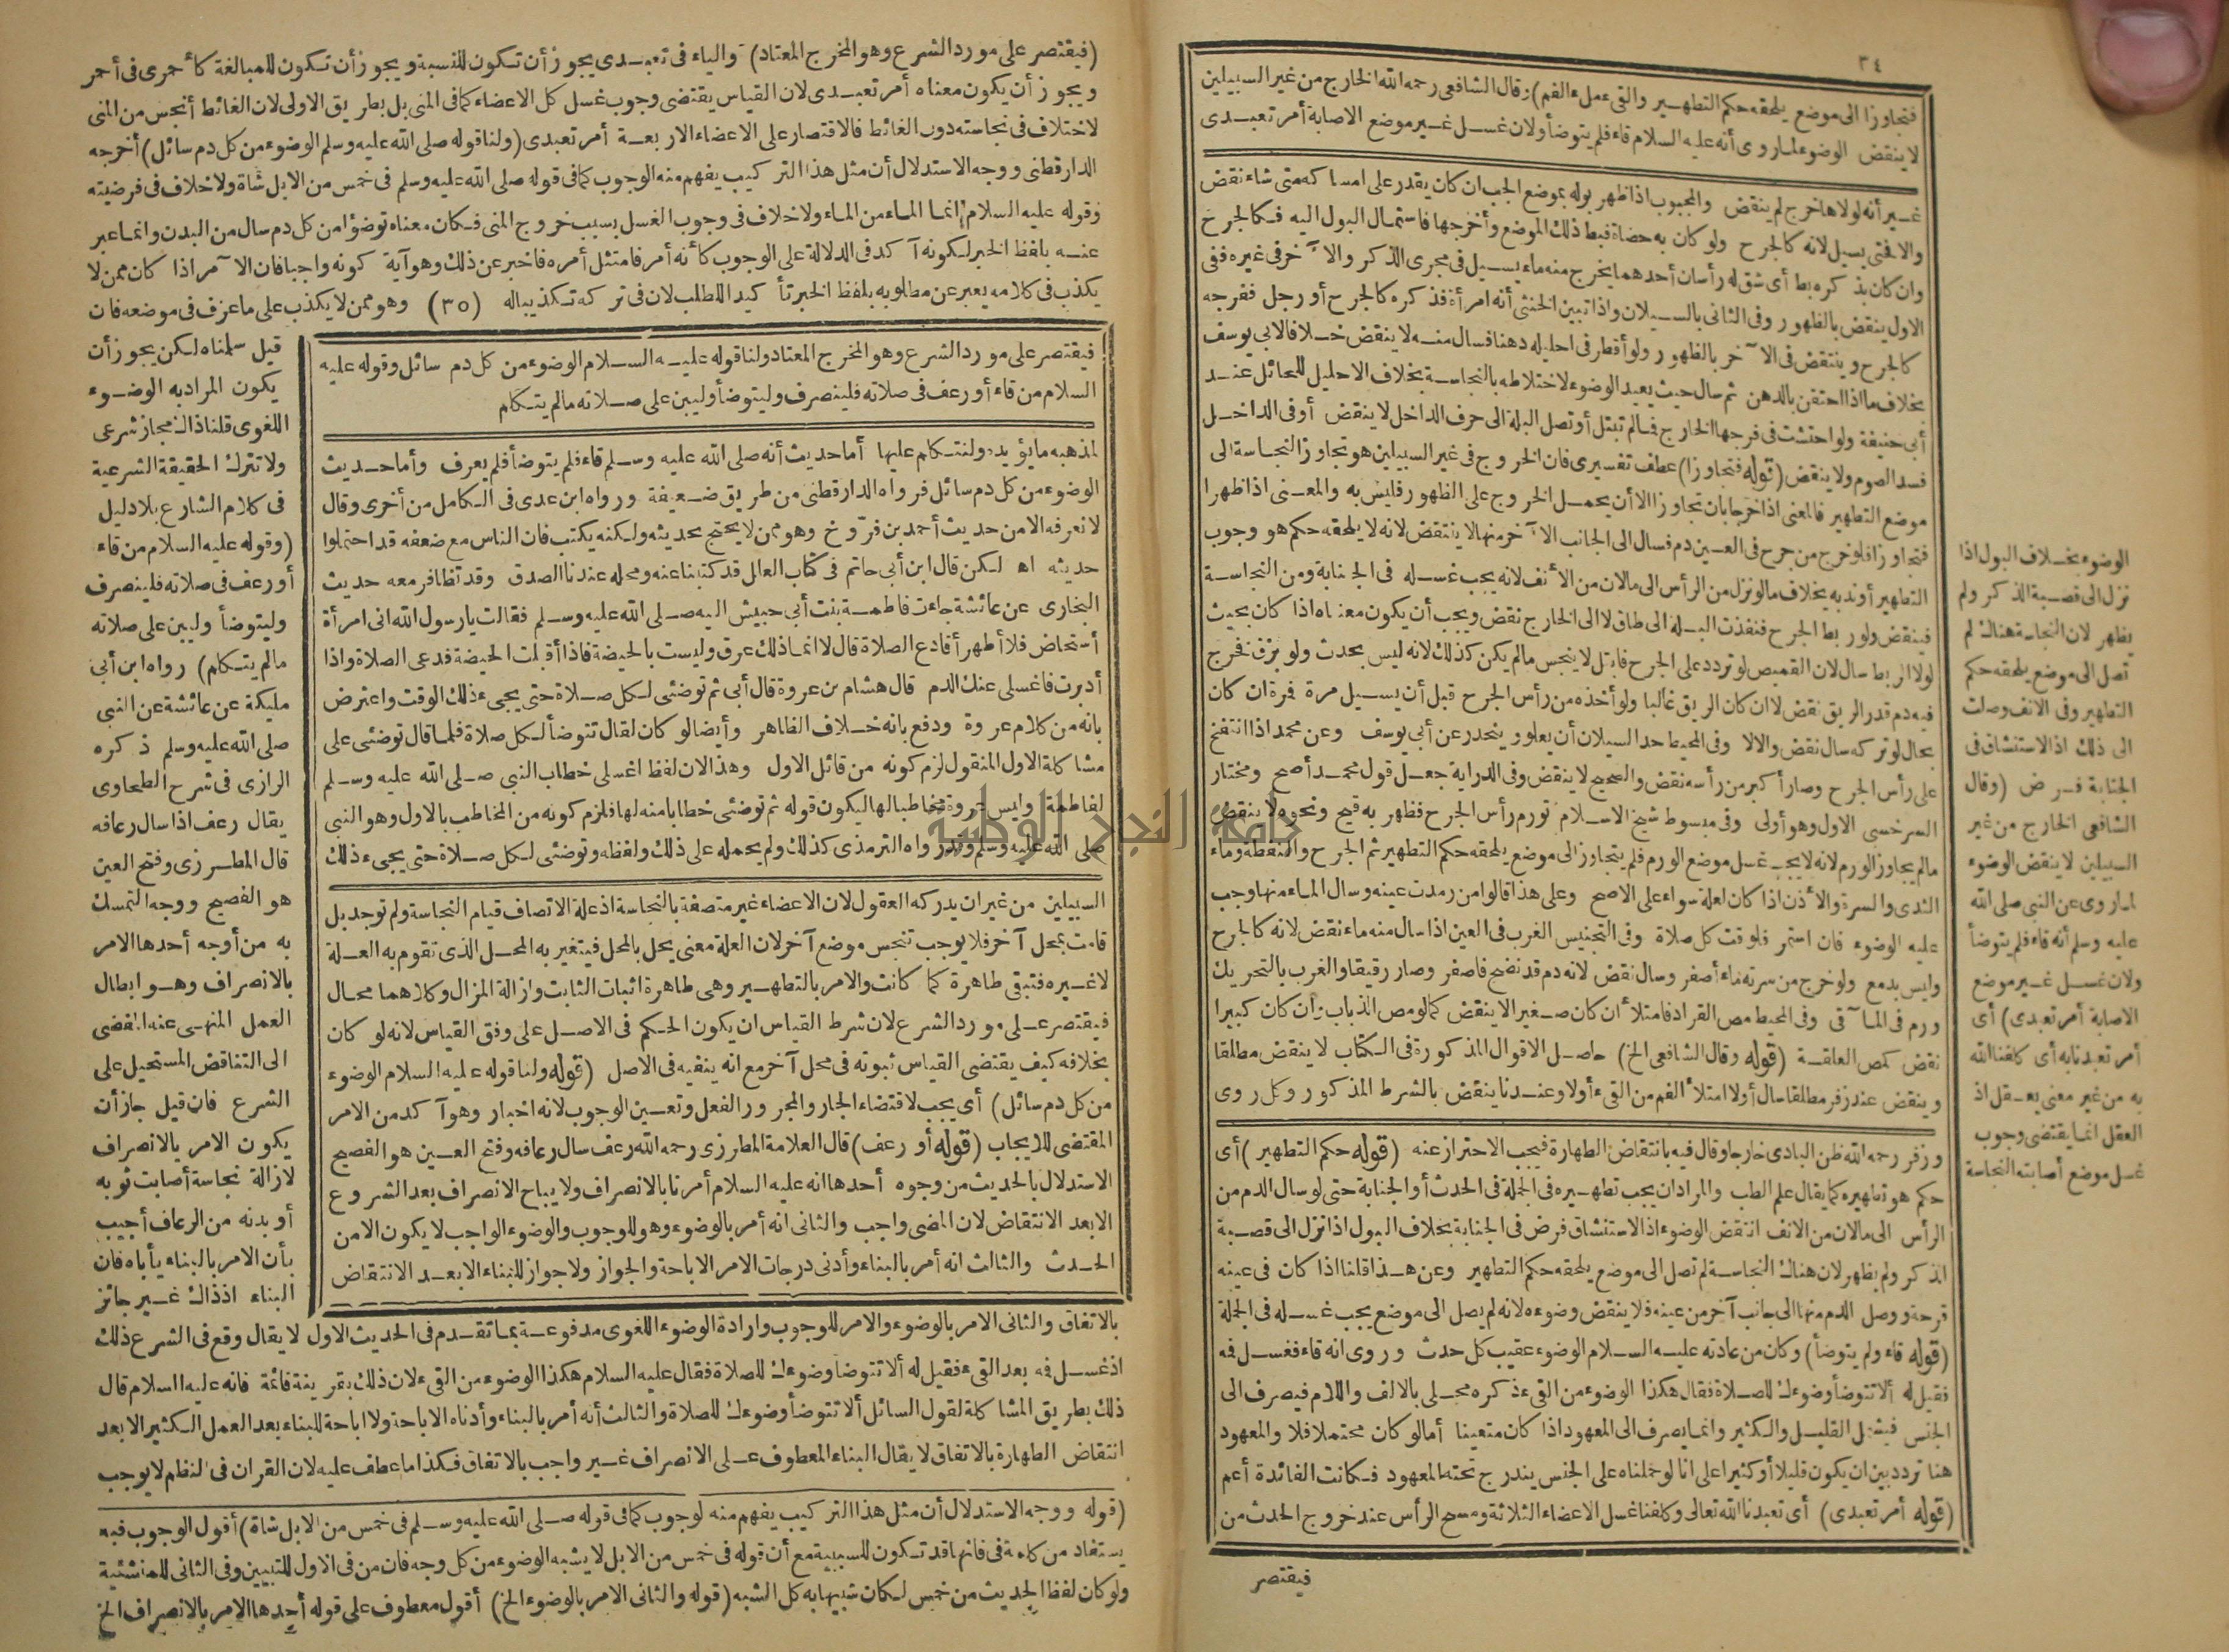 ٣٤
فتجاوزا الى موضع يلحقه حكم التطهير والقىء ملء الفم) وقال الشافعى رحمه الله الخارج من غير السبيلين
لا ينقض الوضوء لما روى أنه عليه السلام قاء فلم يتوضأ ولان غسل غير موضع الاصابة أمر تعبدى
غير أنه لولاها خرج لم ينقض والمجبوب اذا ظهر بوله بموضع الجب ان كان يقدر على امساكه متى شاء نقض
والا فحتى يسيل لانه كالجرح ولو كان به حصاة فبط ذلك الموضع وأخرجها فاستمال البول اليه فكالجرح
وان كان بذكره بط أى شق له رأسان أحدهما يخرج منه ماء يسيل فى مجرى الذكر والآخر فى غيره ففى
الاول ينقض بالظهور وفى الثانى بالسيلان واذا تبين الخنثى أنه امرأة فذكره كالجرح أو رجل ففرجه
كالجرح وينتقض فى الآخر بالظهور ولو أقطر فى احليله دهنا فسال منه لا ينقض خلافا لابى يوسف
بخلاف ما اذا احتقن بالدهن ثم سال حيث يعيد الوضوء لاختلاطه بالنجاسة بخلاف الاحليل للحائل عند
أبى حنيفة ولو احتشت فى فرجها الخارج فما لم تبتل أو تصل البلة الى حرف الداخل لا ينقض أو فى الداخل
فسد الصوم ولا ينقض (قوله فتجاوزا) عطف تفسيرى فان الخروج فى غير السبيلين هو تجاوز النجاسة الى
موضع التطهير فالمعنى اذا خرجا بان تجاوزا الا أن يحمل الخروج على الظهور فليس به والمعنى اذا ظهرا
فتجاوزا فلو خرج من جرح فى العين دم فسال الى الجانب الآخر منها لا ينتقض لانه لا يلحقه حكم هو وجوب
التطهير أو ندبه بخلاف ما لو نزل من الرأس الى مالان من الأنف لانه يجب غسله فى الجنابة ومن النجاسة
فينقض ولو ربط الجرح فنفذت البلة الى طاق لا الى الخارج نقض ويجب أن يكون معناه اذا كان بحيث
لولا الربط سال لان القميص لو تردد على الجرح فابتل لا ينجس ما لم يكن كذلك لانه ليس بحدث ولو بزق فخرج
فيه دم قدر الريق نقض لا ان كان الريق غالبا ولو أخذه من رأس الجرح قبل أن يسيل مرة فمرة ان كان
بحال لو تركه سال نقض والا لا وفى المحيط حد السيلان أن يعلو وينحدر عن أبى يوسف وعن محمد اذا انتفخ
على رأس الجرح وصار أكبر من رأسه نقض والصحيح لا ينقض وفى الدراية جعل قول محمد أصح ومختار
السرخسى الاول وهو أولى وفى مبسوط شيخ الاسلام تورم رأس الجرح فظهر به قيح ونحوه لا ينقض
مالم يجاوز الورم لانه لا يجب غسل موضع الورم فلم يتجاوز الى موضع يلحقه حكم التطهير ثم الجرح والنفطة وماء
الثدى والسرة والأذن اذا كان لعلة سواء على الاصح وعلى هذا قالوا من رمدت عينه وسال الماء منها وجب
عليه الوضوء فان استمر فلوقت كل صلاة وفى التجنيس الغرب فى العين اذا سال منه ماء نقض لانه كالجرح
وليس بدمع ولو خرج من سرته ماء أصفر وسال نقض لانه دم قد نضج فاصفر وصار رقيقا والغرب بالتحريك
ورم فى المآقى وفى المحيط مص القراد فامتلأ ان كان صغيرا لا ينقض كما لو مص الذباب وان كان كبيرا
نقض كمص العلقة (قوله وقال الشافعى الخ) حاصل الاقوال المذكورة فى الكتاب لا ينقض مطلقا
وينقض عند زفر مطلقا سال أولا امتلأ الفم من القىء أولا وعندنا ينقض بالشرط المذكور وكل روى
وزفر رحمه الله ظن البادى خارجا وقال فيه بانتقاض الطهارة فيجب الاحتراز عنه (قوله حكم التطهير) أى
حكم هو تطهيره كما يقال علم الطب والمراد ان يجب تطهيره فى الجملة فى الحدث أو الجنابة حتى لو سال الدم من
الرأس الى مالان من الانف انتقض الوضوء اذ الاستنشاق فرض فى الجنابة بخلاف البول اذا نزل الى قصبة
الذكر ولم يظهر لان هناك النجاسة لم تصل الى موضع يلحقه حكم التطهير وعن هذا قلنا اذا كان فى عينه
قرحة ووصل الدم منها الى جانب آخر من عينه فلا ينقض وضوءه لانه لم يصل الى موضع يجب غسله فى الجملة
(قوله قاء ولم يتوضأ) وكان من عادته عليه السلام الوضوء عقيب كل حدث وروى انه قاء فغسل فه
فقيل له ألا تتوضأ وضوءك للصلاة فقال هكذا الوضوء من القىء ذكره محلى بالالف واللام فيصرف الى
الجنس فيشمل القليل والكثير وانما يصرف الى المعهود اذا كان متعينا أما لو كان محتملا فلا والمعهود
هنا تردد بين ان يكون قليلا أو كثيرا على انا لو حملناه على الجنس يندرج تحته المعهود فكانت الفائدة أعم
(قوله أمر تعبدى) أى تعبدنا الله تعالى وكلفنا غسل الاعضاء الثلاثة ومسح الرأس عند خروج الحدث من
فيقتصر
الوضوء بخلاف البول اذا
نزل الى قصبة الذكر ولم
يظهر لان النجاسة هناك لم
تصل الى موضع يلحقه حكم
التطهير وفى الانف وصلت
الى ذلك اذ الاستنشاق فى
الجنابة فرض (وقال
الشافعى الخارج من غير
السبيلين لا ينقض الوضوء
لما روى عن النبى صلى الله
عليه وسلم أنه قاء فلم يتوضأ
ولان غسل غير موضع
الاصابة أمر تعبدى) أى
أمر تعبدنا به أى كلفنا الله
به من غير معنى يعقل اذ
العقل انما يقتضى وجوب
غسل موضع أصابته النجاسة
(فيقتصر على مورد الشرع وهو المخرج المعتاد) والياء فى تعبدى يجوز أن تكون للنسبة ويجوز أن تكون للمبالغة كأحمرى فى أحمر
ويجوز أن يكون معناه أمر تعبدى لان القياس يقتضى وجوب غسل كل الاعضاء كما فى المنى بل بطريق الاولى لان الغائط أنجس من المنى
لاختلاف فى نجاسته دون الغائط فالاقتصار على الاعضاء الاربعة أمر تعبدى (ولنا قوله صلى الله عليه وسلم الوضوء من كل دم سائل) أخرجه
الدارقطنى ووجه الاستدلال أن مثل هذا التركيب يفهم منه الوجوب كما فى قوله صلى الله عليه وسلم فى خمس من الابل شاة ولا خلاف فى فرضيته
وقوله عليه السلام انما الماء من الماء ولا خلاف فى وجوب الغسل بسبب خروج المنى فكان معناه توضؤا من كل دم سال من البدن وانما عبر
عنه بلفظ الخبر لكونه آكد فى الدلالة على الوجوب كأنه أمر فامتثل أمره فاخبر عن ذلك وهو آية كونه واجبا فان الآمر اذا كان ممن لا
يكذب فى كلامه يعبر عن مطلوبه بلفظ الخبر تأكيد اللطلب لان فى تركه تكذيبا له (٣٥) وهو ممن لا يكذب على ما عرف فى موضعه فان
قيل سلمناه لكن يجوز أن
يكون المراد به الوضوء
اللغوى قلنا ذاك مجاز شرعى
ولا تترك الحقيقة الشرعية
فى كلام الشارع بلا دليل
(وقوله عليه السلام من قاء
أو رعف فى صلاته فلينصرف
وليتوضأ وليبن على صلاته
مالم يتكلم) رواه ابن أبى
مليكة عن عائشة عن النبى
صلى الله عليه وسلم ذكره
الرازى فى شرح الطحاوى
يقال رعف اذا سال رعافه
قال المطرزى وفتح العين
هو الفصيح ووجه التمسك
به من أوجه أحدها الامر
بالانصراف وهو ابطال
العمل المنهى عنه المفضى
الى التناقض المستحيل على
الشرع فان قيل جاز أن
يكون الامر بالانصراف
لازالة نجاسة أصابت ثوبه
أو بدنه من الرعاف أجيب
بأن الامر بالبناء يأباه فان
البناء اذ ذاك غير جائز
فيقتصر على مورد الشرع وهو المخرج المعتاد ولنا قوله عليه السلام الوضوء من كل دم سائل وقوله عليه
السلام من قاء أو رعف فى صلاته فلينصرف وليتوضأ وليبن على صلاته مالم يتكلم
لمذهبه ما يؤيده ولنتكلم عليها أما حديث أنه صلى الله عليه وسلم قاء فلم يتوضأ فلم يعرف وأما حديث
الوضوء من كل دم سائل فرواه الدارقطنى من طريق ضعيفة ورواه ابن عدى فى الكامل من أخرى وقال
لا نعرفه الا من حديث أحمد بن فروخ وهو ممن لا يحتج بحديثه ولكنه يكتب فان الناس مع ضعفه قد احتملوا
حديثه اه لكن قال ابن أبى حاتم فى كتاب العلل قد كتبنا عنه ومحله عندنا الصدق وقد تظافر معه حديث
البخارى عن عائشة جاءت فاطمة بنت أبى حبيش اليه صلى الله عليه وسلم فقالت يا رسول الله انى امرأة
أستحاض فلا أطهر أفأدع الصلاة قال لا انما ذلك عرق وليست بالحيضة فاذا أقبلت الحيضة فدعى الصلاة واذا
أدبرت فاغسلى عنك الدم قال هشام بن عروة قال أبى ثم توضئى لكل صلاة حتى يجىء ذلك الوقت واعترض
بانه من كلام عروة ودفع بانه خلاف الظاهر وأيضا لو كان لقال تتوضأ لكل صلاة فلما قال توضئى على
مشاكلة الاول المنقول لزم كونه من قائل الاول وهذا لان لفظ اغسلى خطاب النبى صلى الله عليه وسلم
لفاطمة وليس عروة مخاطبا لها ليكون قوله ثم توضئى خطابا منه لها فلزم كونه من المخاطب بالاول وهو النبى
صلى الله عليه وسلم وقد رواه الترمذى كذلك ولم يحمله على ذلك ولفظه وتوضئى لكل صلاة حتى يجىء ذلك
السبيلين من غير ان يدركه العقول لان الاعضاء غير متصفة بالنجاسة اذ علة الاتصاف قيام النجاسة ولم توجد بل
قامت بمحل آخر فلا يوجب تنجس موضع آخر لان العلة معنى يحل بالمحل فيتغير به المحل الذى تقوم به العلة
لا غيره فتبقى طاهرة كما كانت والامر بالتطهير وهى طاهرة اثبات الثابت وازالة المزال وكلاهما محال
فيقتصر على مورد الشرع لان شرط القياس ان يكون الحكم فى الاصل على وفق القياس لانه لو كان
بخلافه كيف يقتضى القياس ثبوته فى محل آخر مع انه ينفيه فى الاصل (قوله ولنا قوله عليه السلام الوضوء
من كل دم سائل) أى يجب لاقتضاء الجار والمجرور الفعل وتعين الوجوب لانه اخبار وهو آكد من الامر
المقتضى للايجاب (قوله أو رعف) قال العلامة المطرزى رحمه الله رعف سال رعافه وفتح العين هو الفصيح
الاستدلال بالحديث من وجوه أحدها انه عليه السلام أمرنا بالانصراف ولا يباح الانصراف بعد الشروع
الا بعد الانتقاض لان المضى واجب والثانى انه أمر بالوضوء وهو للوجوب والوضوء الواجب لا يكون الا من
الحدث والثالث انه أمر بالبناء وأدنى درجات الامر الاباحة والجواز ولا جواز للبناء الا بعد الانتقاض
بالاتفاق والثانى الامر بالوضوء والامر للوجوب وارادة الوضوء اللغوى مدفوعة بما تقدم فى الحديث الاول لا يقال وقع فى الشرع ذلك
اذ غسل فه بعد القىء فقيل له ألا تتوضأ وضوءك للصلاة فقال عليه السلام هكذا الوضوء من القىء لان ذلك بقرينة قائمة فانه عليه السلام قال
ذلك بطريق المشاكلة لقول السائل ألا تتوضأ وضوءك للصلاة والثالث أنه أمر بالبناء وأدناه الاباحة ولا اباحة للبناء بعد العمل الكثير الا بعد
انتقاض الطهارة بالاتفاق لا يقال البناء المعطوف على الانصراف غير واجب بالاتفاق فكذا ما عطف عليه لان القران فى النظم لا يوجب
(قوله ووجه الاستدلال أن مثل هذا التركيب يفهم منه لوجوب كما فى قوله صلى الله عليه وسلم فى خمس من الابل شاة) أقول الوجوب فيه
يستفاد من كلمة فى فانها قد تكون للسببية مع أن قوله فى خمس من الابل لا يشبه الوضوء من كل وجه فان من فى الاول للتبيين وفى الثانى للمنشئية
ولو كان لفظ الحديث من خمس لكان شبيها به كل الشبه (قوله والثانى الامر بالوضوء الخ) أقول معطوف على قوله أحدها الامر بالانصراف الخ
جامعة النجاح الوطنية